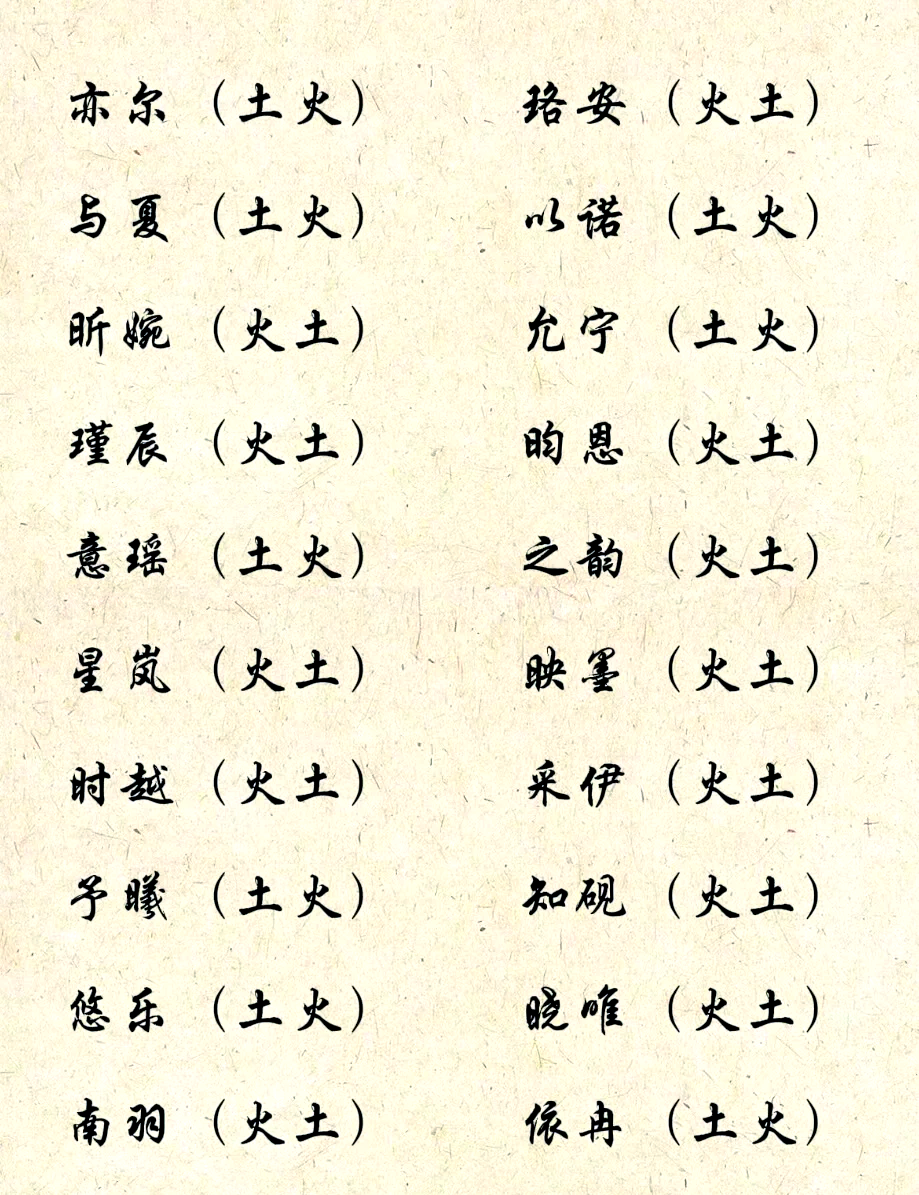 亦尔（土火） 珞安（火土）
与夏（土火） 以诺（土火）
昕婉（火土） 允宁（土火）
瑾辰（火土） 昀恩（火土）
意瑶（土火） 之韵（火土）
星岚（火土） 映墨（火土）
时越（火土） 采伊（火土）
予曦（土火） 知砚（火土）
悠乐（土火） 晓唯（火土）
南羽（火土） 依冉（土火）